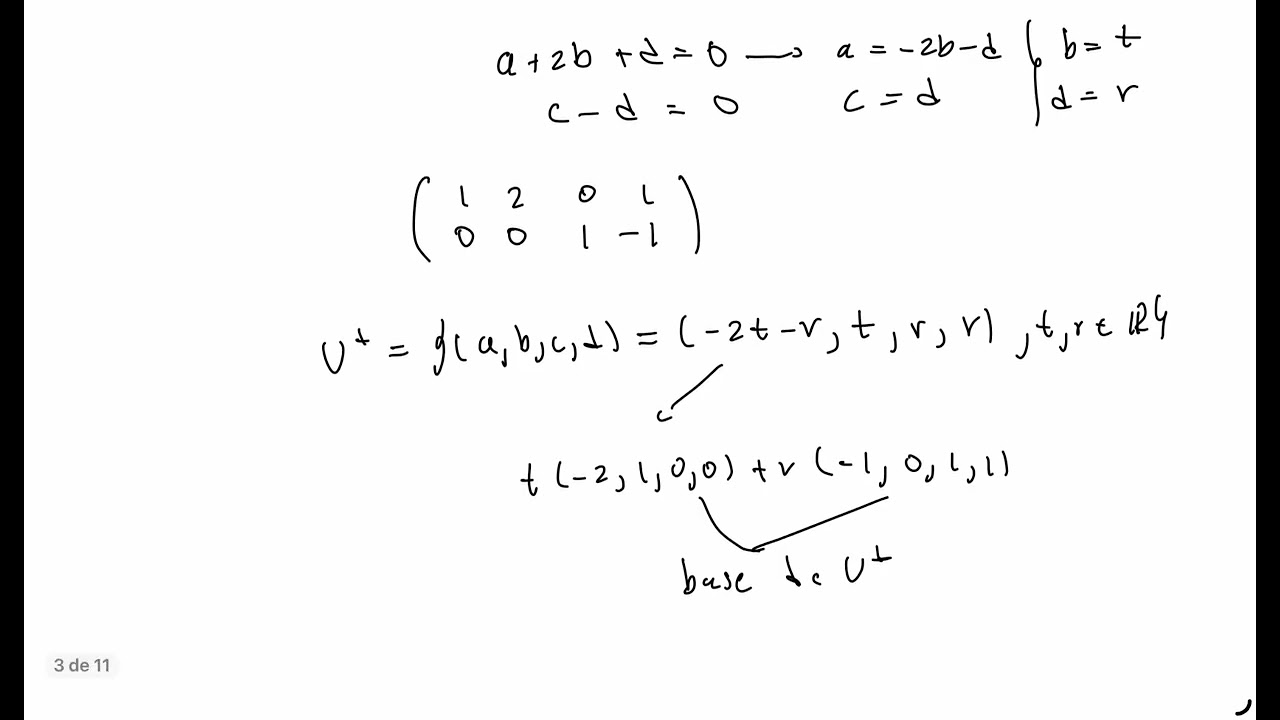 a + 2b + d = 0 → a = -2b - d | b = t
c - d = 0 c = d | d = r
( 1 2 0 1
0 0 1 -1 )
U⊥ = {(a, b, c, d) = (-2t - r, t, r, r) , t, r ∈ ℝ}
t (-2, 1, 0, 0) + r (-1, 0, 1, 1)
base de U⊥
3 de 11